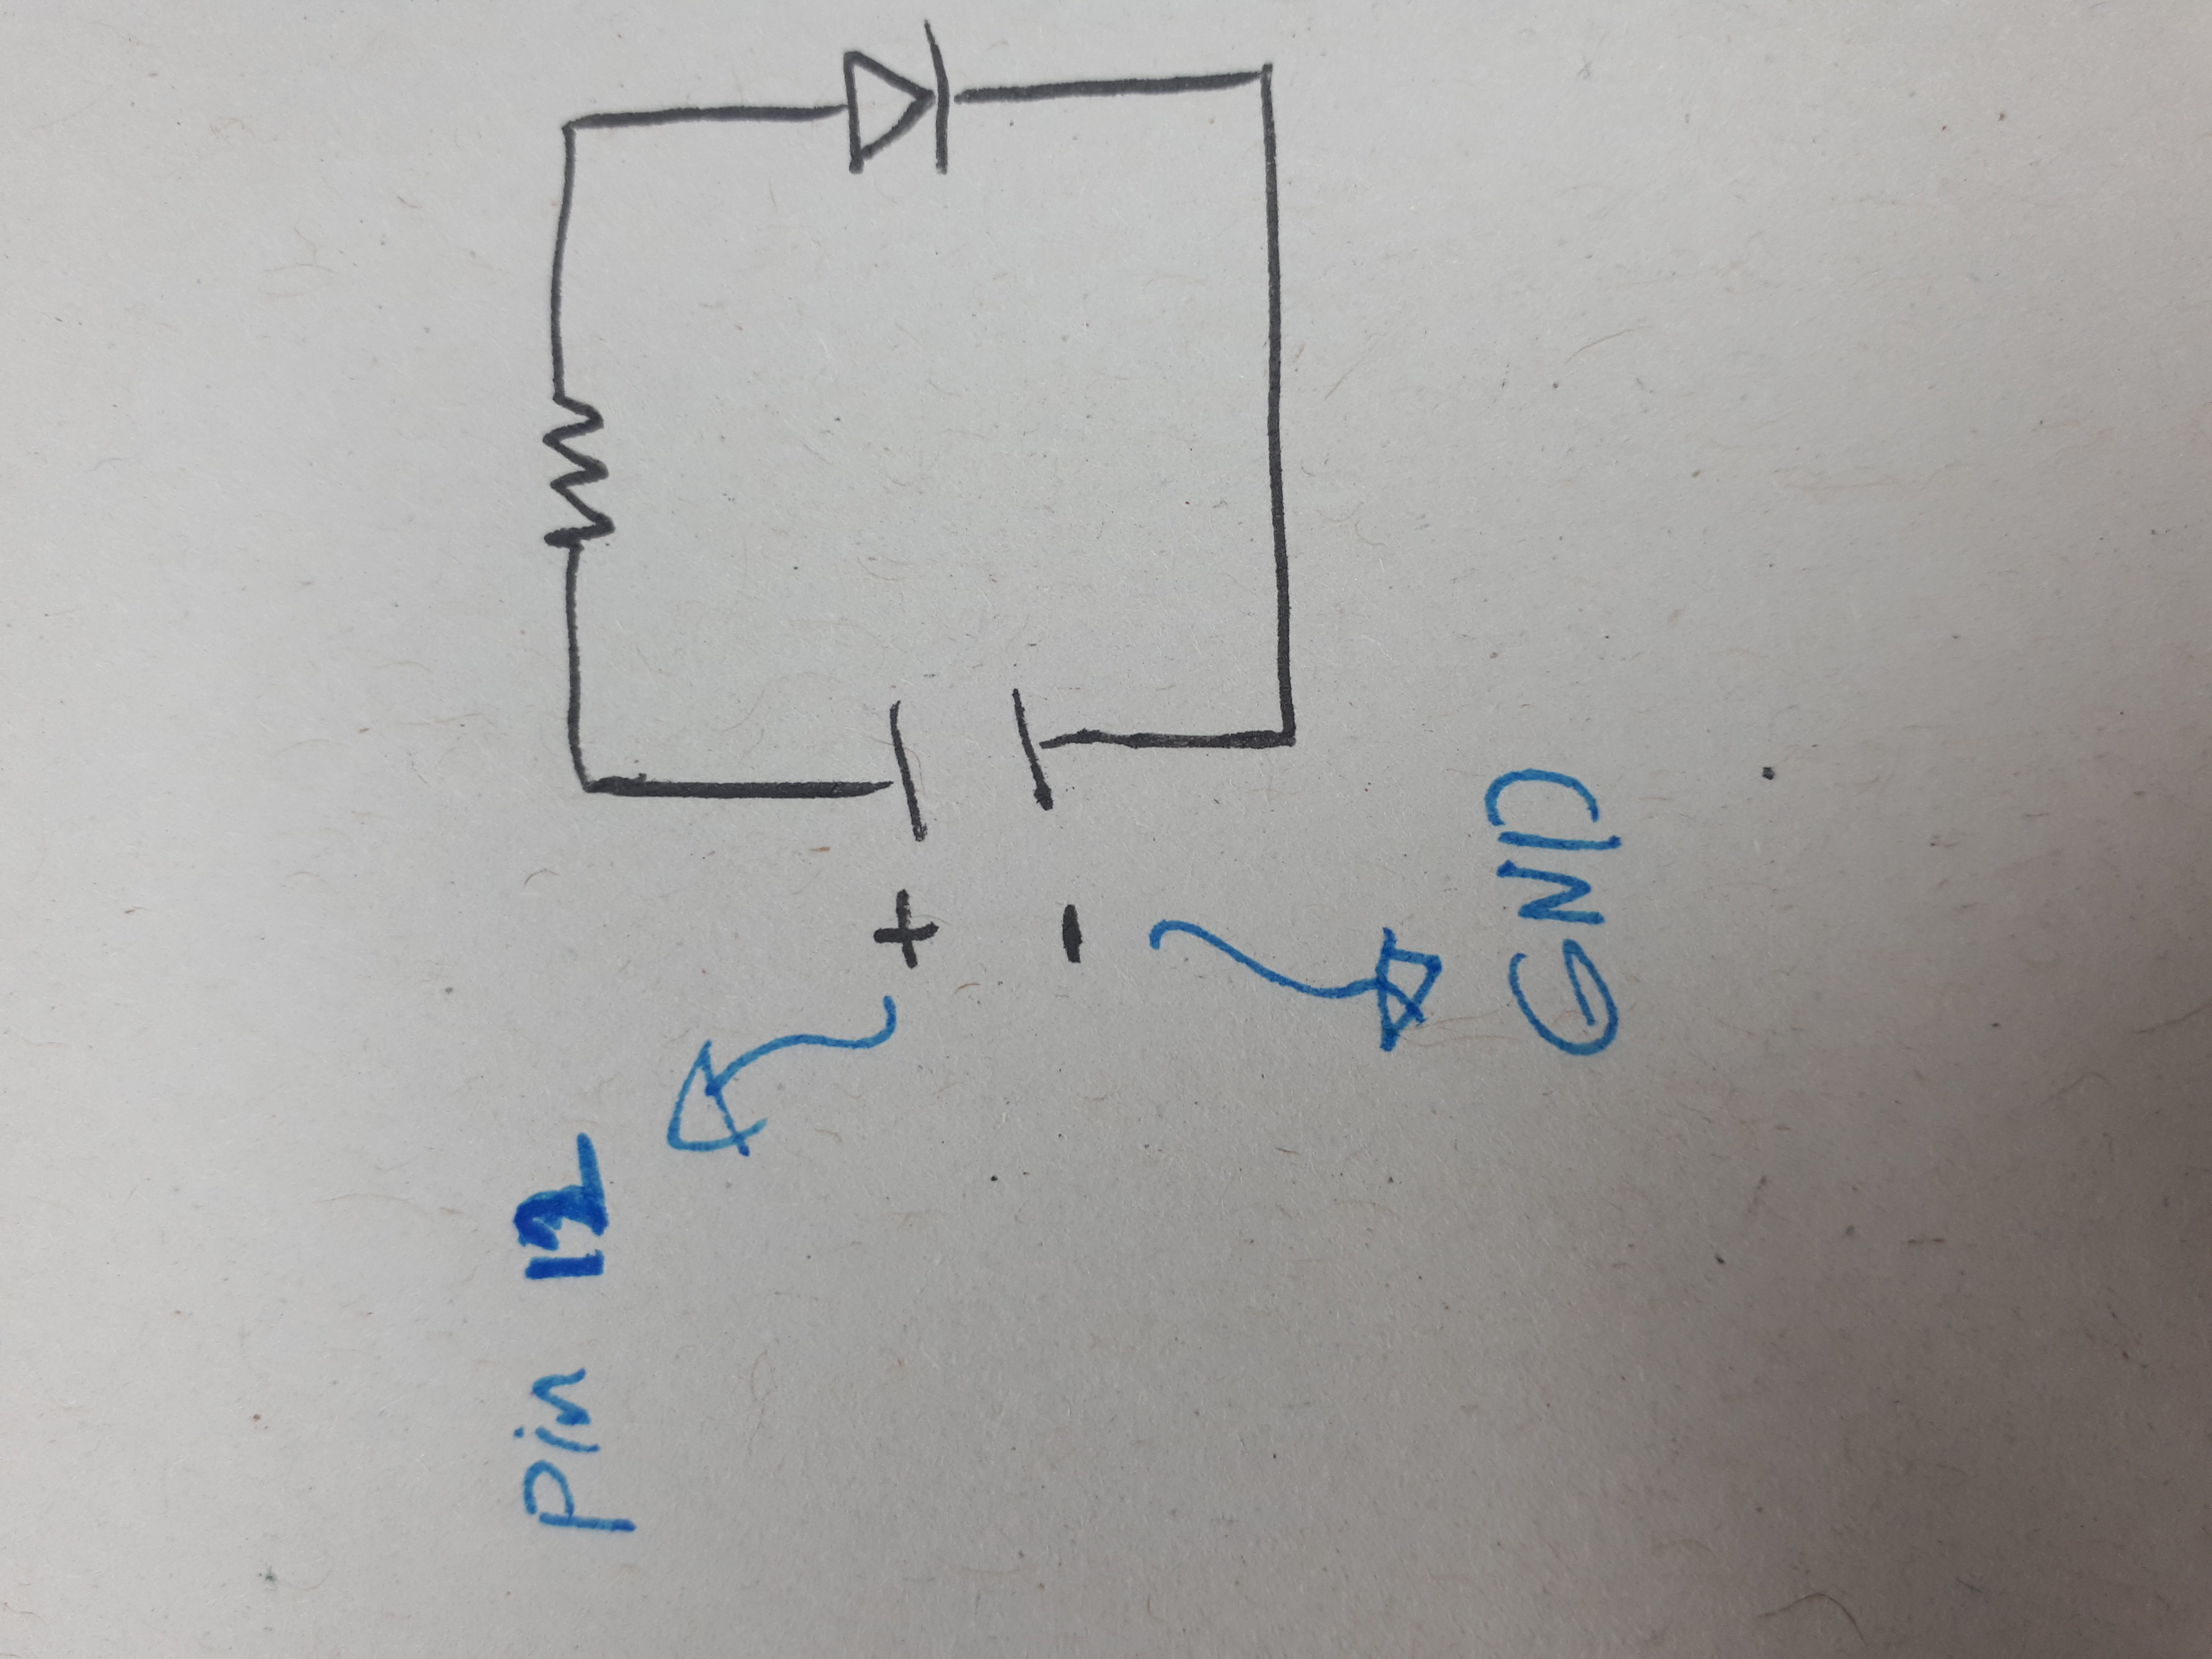 pin 12
+
-
GND